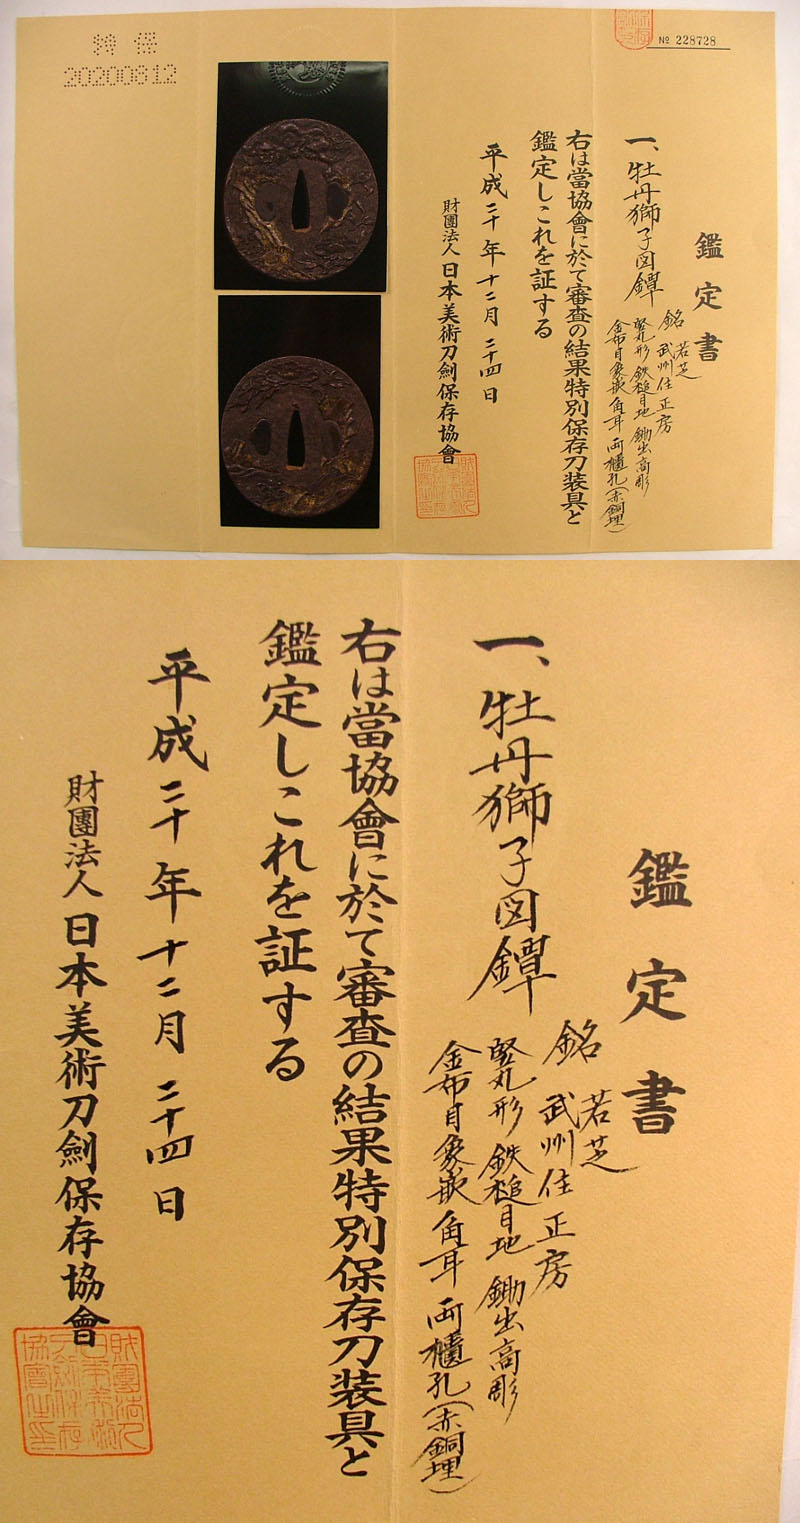 特 保
20200812
№ 228728
鑑定書
一、牡丹獅子図鐔
銘 若芝
武州住正房
竪丸形 鉄槌目地 鋤出高彫
金布目象嵌 角耳 両櫃孔(赤銅埋)
右は當協會に於て審査の結果特別保存刀装具と
鑑定しこれを証する
平成二十年十二月二十四日
財團法人日本美術刀劍保存協會
鑑定書
一、牡丹獅子図鐔
銘 若芝
武州住正房
竪丸形 鉄槌目地 鋤出高彫
金布目象嵌 角耳 両櫃孔(赤銅埋)
右は當協會に於て審査の結果特別保存刀装具と
鑑定しこれを証する
平成二十年十二月二十四日
財團法人日本美術刀劍保存協會
財團法人日本美術刀劍保存協會之印